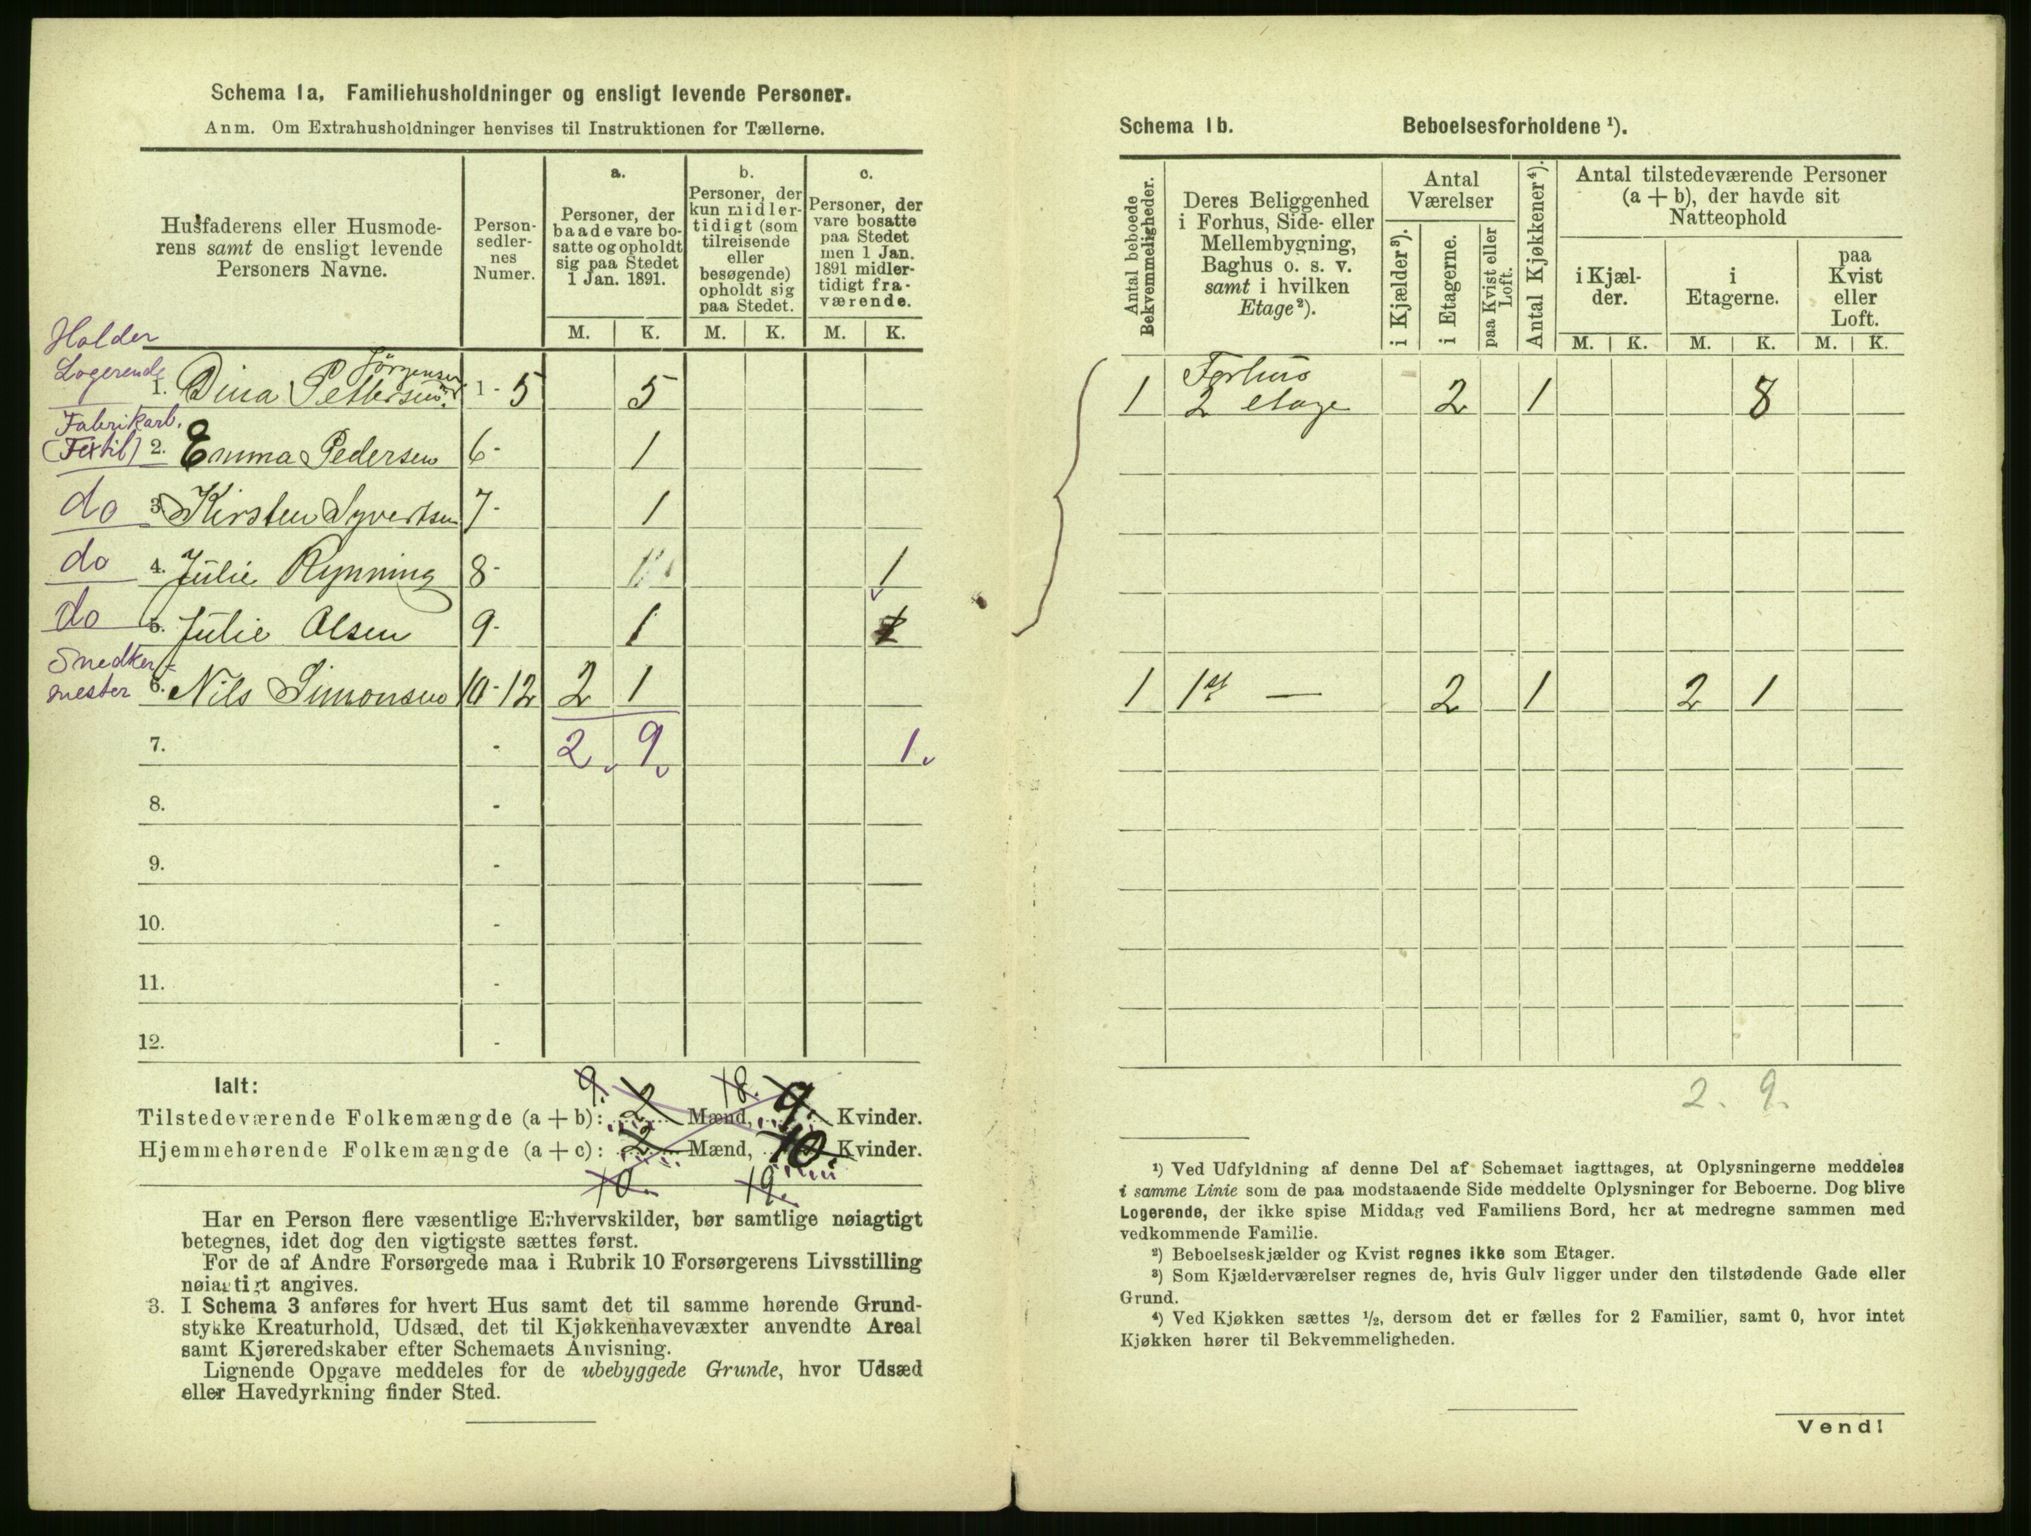 Schema 1a. Familiehusholdninger og ensligt levende Personer.
Anm. Om Extrahusholdninger henvises til Instruktionen for Tællerne.
Husfaderens eller Husmode-
rens samt de ensligt levende
Personers Navne.
Person-
sedler-
nes
Numer.
a.
Personer, der
baade vare bo-
satte og opholdt
sig paa Stedet
1 Jan. 1891.
b.
Personer, der
kun midler-
tidigt (som
tilreisende
eller
besøgende)
opholdt sig
paa Stedet.
c.
Personer, der
vare bosatte
paa Stedet
men 1 Jan.
1891 midler-
tidigt fra-
værende.
M. K. M. K. M. K.
Holder
Logerende
1. Dina Pettersen Jörgensen 1 - 5 5
Fabrikarb.
(Textil) 2. Emma Pedersen 6 - 1
do 3. Kirsten Syvertsen 7 - 1
do 4. Julie Rynning 8 - 1 1
do 5. Julie Olsen 9 - 1 1
Snedker-
mester 6. Nils Simonsen 10 - 12 2 1
7. - 2. 9. 1.
8. -
9. -
10. -
11. -
12. -
Ialt:
9. 18.
Tilstedeværende Folkemængde (a + b): 2 Mænd, 9. Kvinder.
Hjemmehørende Folkemængde (a + c): 2 Mænd, 10. Kvinder.
10. 19.
Har en Person flere væsentlige Erhvervskilder, bør samtlige nøiagtigt
betegnes, idet dog den vigtigste sættes først.
For de af Andre Forsørgede maa i Rubrik 10 Forsørgerens Livsstilling
nøiagtigt angives.
3. I Schema 3 anføres for hvert Hus samt det til samme hørende Grund-
stykke Kreaturhold, Udsæd, det til Kjøkkenhavevæxter anvendte Areal
samt Kjøreredskaber efter Schemaets Anvisning.
Lignende Opgave meddeles for de ubebyggede Grunde, hvor Udsæd
eller Havedyrkning finder Sted.
Schema 1b. Beboelsesforholdene ¹).
Antal beboede
Bekvemmeligheder.
Deres Beliggenhed
i Forhus, Side- eller
Mellembygning,
Baghus o. s. v.
samt i hvilken
Etage²).
Antal
Værelser
i Kjælder³).
i Etagerne.
paa Kvist eller
Loft.
Antal Kjøkkener⁴).
Antal tilstedeværende Personer
(a + b), der havde sit
Natteophold
i Kjæl-
der.
i
Etagerne.
paa
Kvist
eller
Loft.
M. K. M. K. M. K.
1 Forhus
2 etage 2 1 8
1 1st — 2 1 2 1
2. 9.
¹) Ved Udfyldning af denne Del af Schemaet iagttages, at Oplysningerne meddeles
i samme Linie som de paa modstaaende Side meddelte Oplysninger for Beboerne. Dog blive
Logerende, der ikke spise Middag ved Familiens Bord, her at medregne sammen med
vedkommende Familie.
²) Beboelseskjælder og Kvist regnes ikke som Etager.
³) Som Kjælderværelser regnes de, hvis Gulv ligger under den tilstødende Gade eller
Grund.
⁴) Ved Kjøkken sættes ½, dersom det er fælles for 2 Familier, samt 0, hvor intet
Kjøkken hører til Bekvemmeligheden.
Vend!